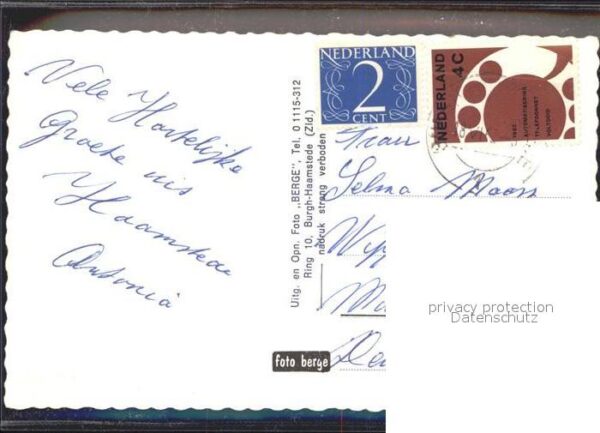 Vele Hartelijke
Groete uis
Haamstede
Antonia
NEDERLAND
2
CENT
NEDERLAND
4C
1962
AUTOMATISERING
TELEFOONNET
VOLTOOID
Uitg. en Opn. Foto „BERGE", Tel. 0 1115-312
Ring 10, Burgh-Haamstede (Zld.)
nadruk streng verboden
foto berge
Frau
Selma Maass
privacy protection
Datenschutz